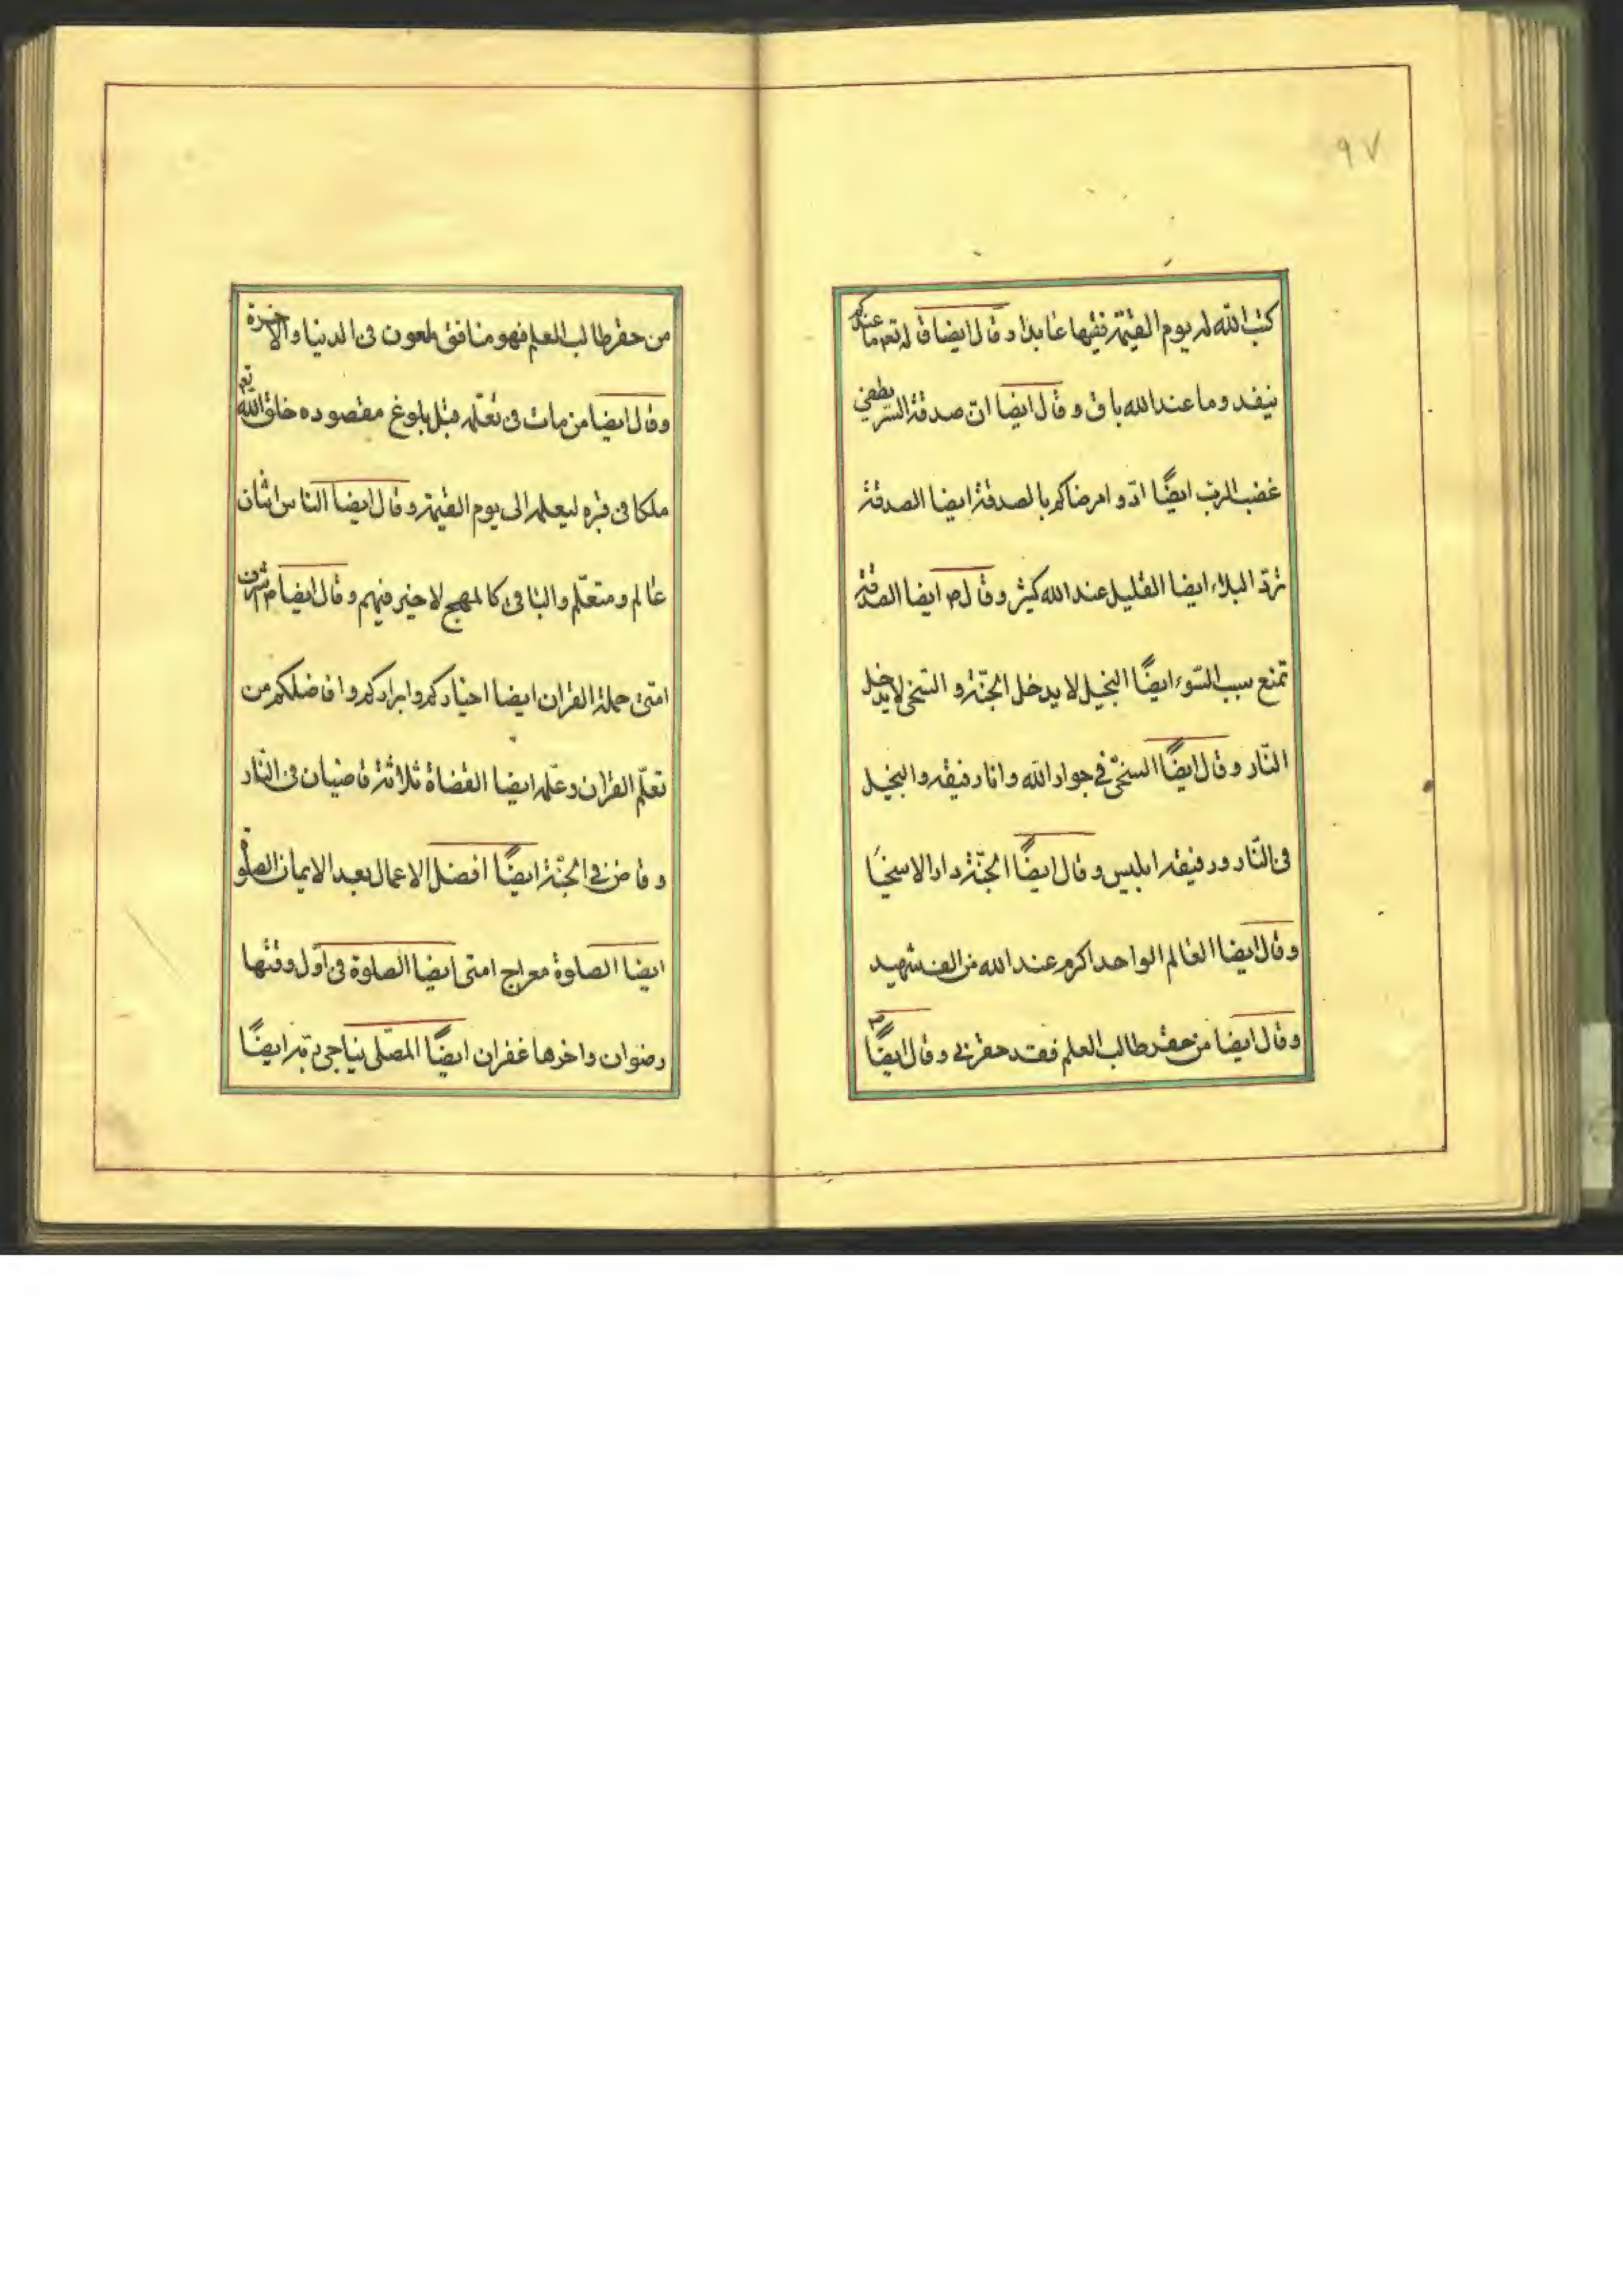 ۹۷
كتب الله له يوم القيمة فقيها عابدا وقال ايضا قاله تعم ما عندكم
ينفد وما عند الله باق وقال ايضا ان صدقة السر يطفئ
غضب الرب ايضًا ادّوا مرضاكم بالصدقة ايضا الصدقة
تردّ البلاء ايضا القليل عند الله كثير وقال ص ايضا الصدقة
تمنع سبب السّوء ايضًا البخيل لا يدخل الجنّة و السّخي لا يدخل
النّار وقال ايضًا السخيّ في جوار الله وانا رفيقه والبخيل
فى النّار ورفيقه ابليس وقال ايضًا الجنّة دار الاسخيا
وقال ايضا العالم الواحد اكرم عند الله من الف شهيد
وقال ايضا من حقر طالب العلم فقد حقرني وقال ص ايضًا
من حقر طالب العلم فهو منافق ملعون فى الدنيا والاخرة
وقال ايضا من مات فى تعلّمه قبل بلوغ مقصوده خلق الله تعم
ملكا فى قبره ليعلمه الى يوم القيمة وقال ايضا الناس اثنان
عالم ومتعلّم والباقى كالمهج لا خير فيهم وقال ايضا ص اشراف
امتى حملة القران ايضا اخياركم وابراركم وافاضلكم من
تعلّم القران وعلّمه ايضا القضاة ثلاثة قاضيان فى النّار
وقاض في الجنّة ايضًا افضل الاعمال بعد الايمان الصلوة
ايضا الصلوة معراج امتى ايضا الصلوة فى اوّل وقتها
رضوان واخرها غفران ايضًا المصلّى يناجى ربّه ايضًا